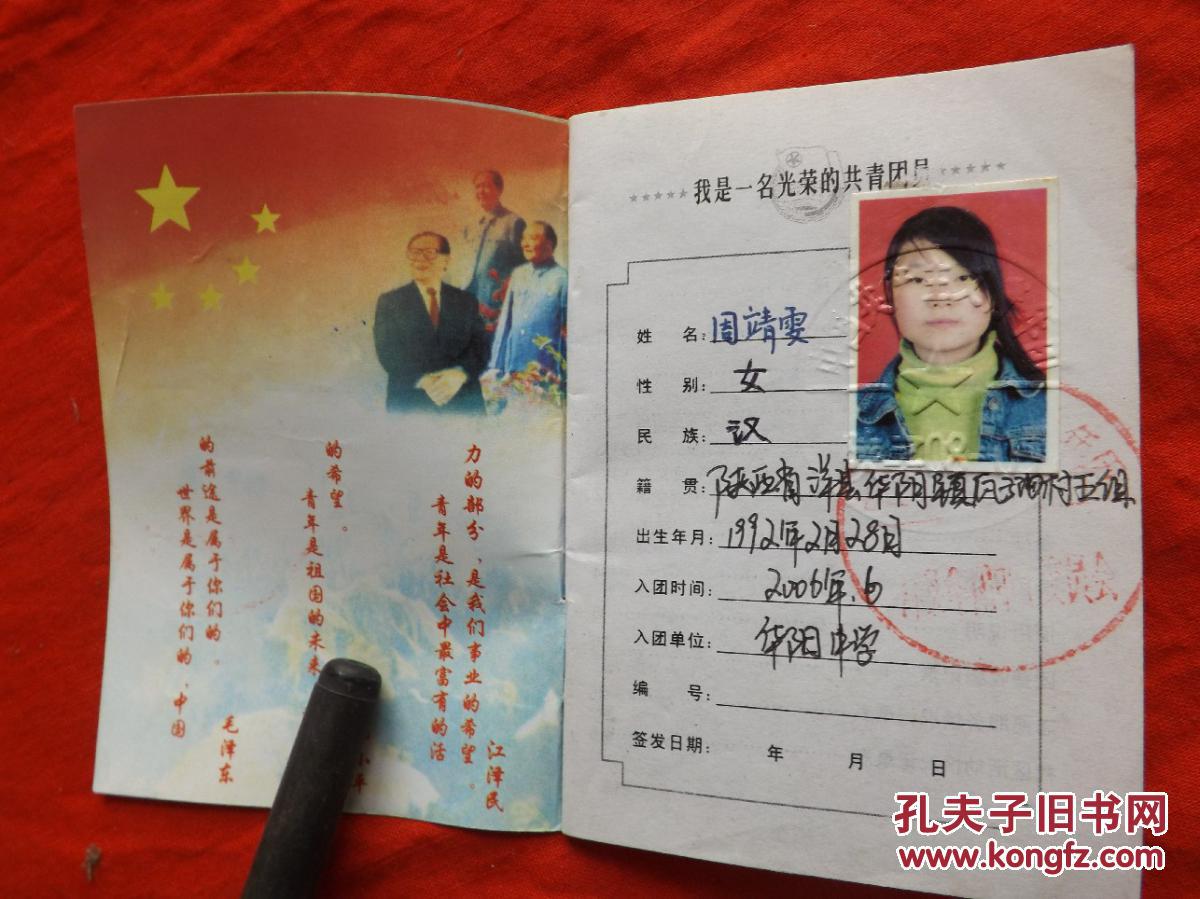 力的部分，是我们事业的希望。
青年是社会中最富有的活
江泽民
的希望。
青年是祖国的未来
小平
的前途是属于你们的。
世界是属于你们的，中国
毛泽东
★★★★★我是一名光荣的共青团员★★★★★
姓 名：周靖雯
性 别：女
民 族：汉
籍 贯：陕西省洋县华阳镇 村五组
出生年月：1992年2月28日
入团时间：2006年.6
入团单位：华阳中学
编 号：
签发日期： 年 月 日
孔夫子旧书网
www.kongfz.com